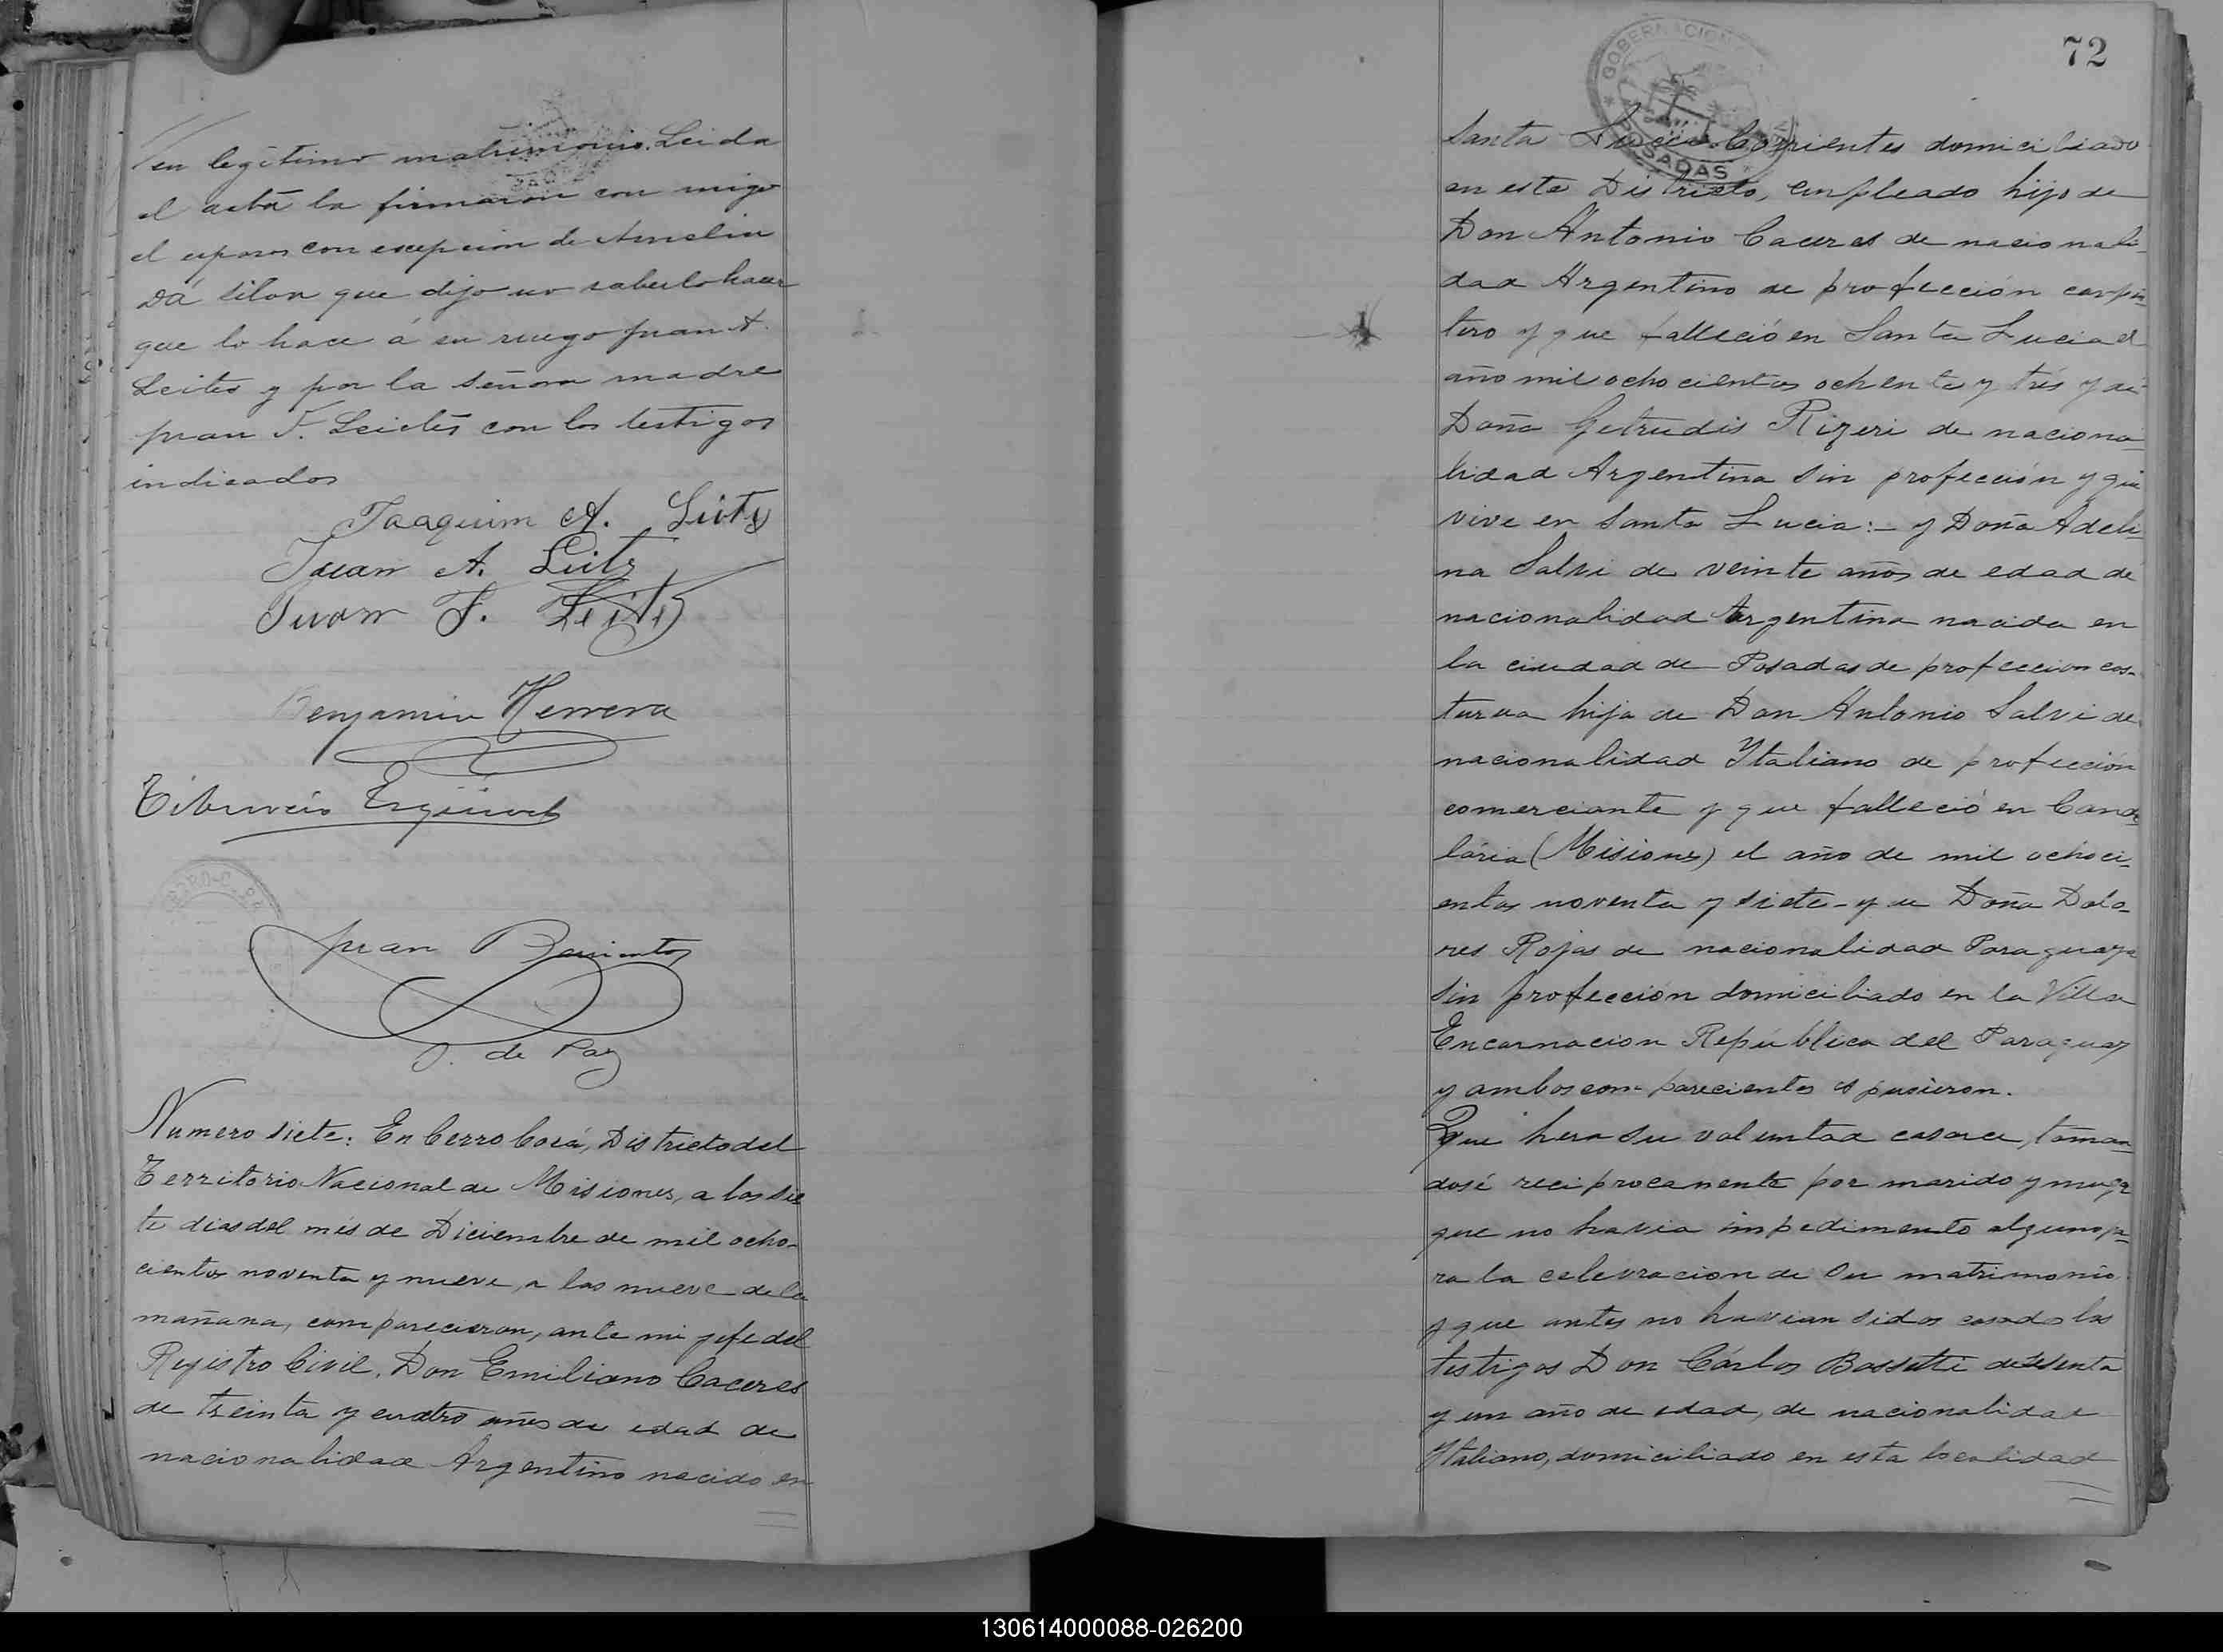 en legítimo matrimonio. Leida
el acta la firmaron con migo
el esposo con escepcion de Amelia
Dá Silva que dijo no saberlo hacer
que lo hace á su ruego Juan A.
Leites y por la señora madre
Juan F. Leites con los testigos
indicados
Joaquim A. Leites
Juan A. Leites
Juan F. Leites
Benjamin Herrera
Tiburcio Esquivel
Juan Barrientos
J. de Paz
Numero siete: En Cerro Corá, Districto del
Territorio Nacional de Misiones, a los sie
te dias del més de Diciembre de mil ocho-
cientos noventa y nueve, a las nueve de la
mañana, comparecieron, ante mi jefe del
Registro Civil, Don Emiliano Caceres
de treinta y cuatro años de edad de
nacionalidad Argentino nacido en
72
GOBERNACION
POSADAS
Santa Lucia Corrientes domiciliado
en este Districto, empleado hijo de
Don Antonio Caceres de nacionali-
dad Argentino de profección carpin
tero y que falleció en Santa Lucia el
año mil ocho cientos ochenta y trés y de
Doña Getrudis Rizeri de naciona
lidad Argentina sin profección y que
vive en Santa Lucia:- y Doña Adeli-
na Salvi de veinte años de edad de
nacionalidad Argentina nacida en
la ciudad de Posadas de profeccion cos-
turera hija de Don Antonio Salvi de
nacionalidad Ytaliano de profección
comerciante y que falleció en Cande
laria (Misiones) el año de mil ochoci-
entos noventa y siete - y de Doña Dolo-
res Rojas de nacionalidad Paraguaya
sin profección domiciliado en la Villa
Encarnacion República del Paraguay
y ambos com-parecientes espusieron.
Que hera su voluntad casarce, toman-
dosé reciprocamente por marido y muger
que no havia impedimento alguno pa-
ra la celevracion de su matrimonio
y que antes no havian sidos casados los
testigos Don Cárlos Bossetti de sesenta
y un año de edad, de nacionalidad
Ytaliano, domiciliado en esta localidad
130614000088-026200